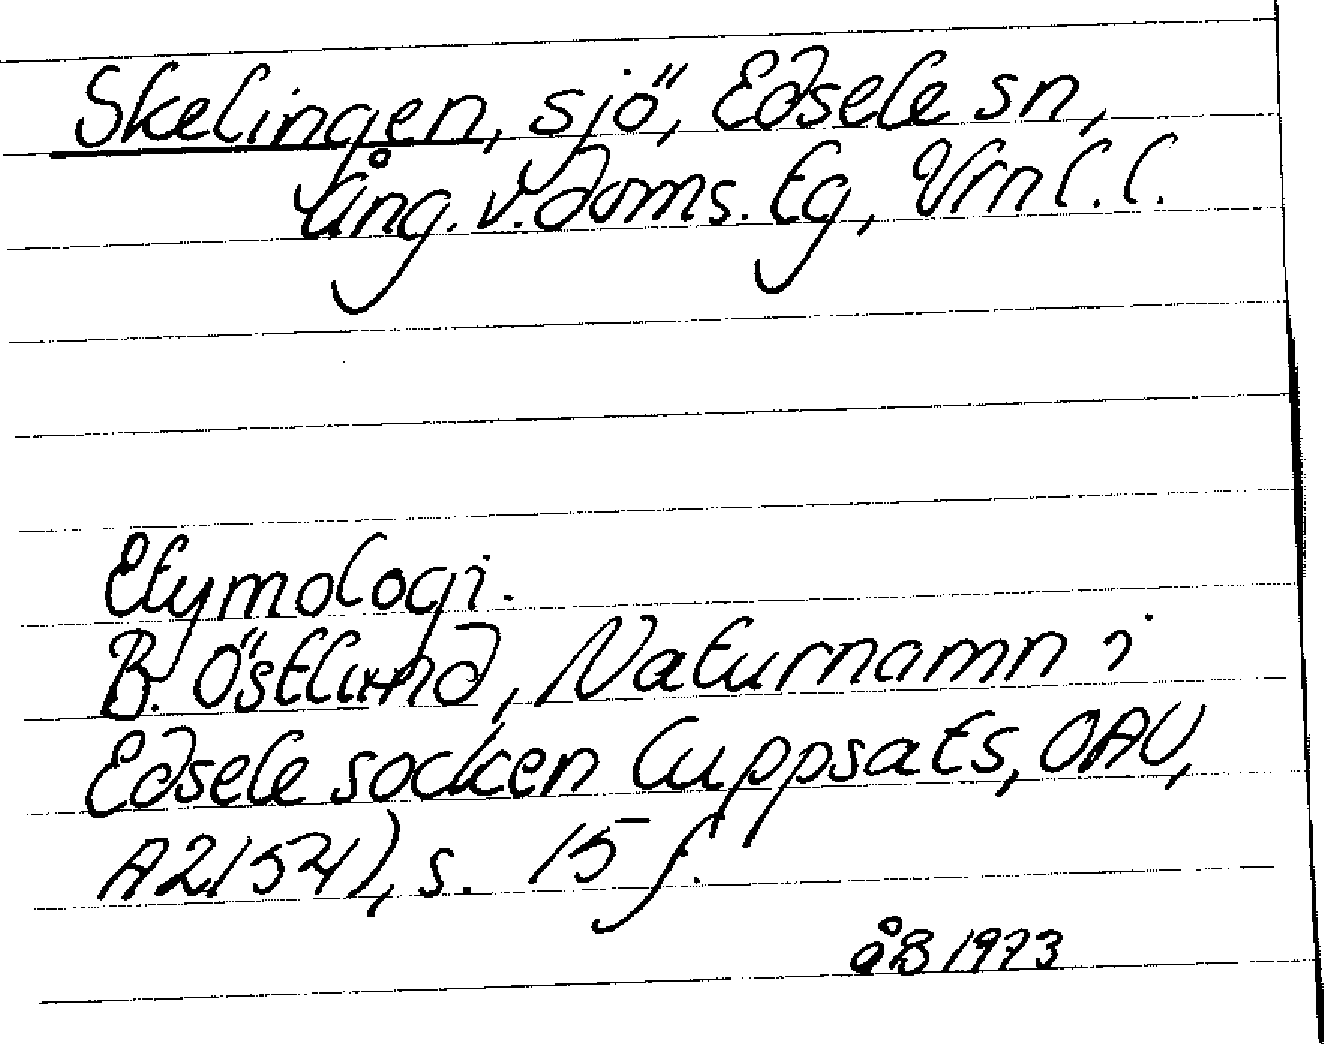 Skelingen, sjö, Edsele sn,
Ång. v. doms. tg, Vrnl. l.
Etymologi.
B. Östlund, Naturnamn i
Edsele socken (uppsats, OAU,
A2154), s. 15 f.
åB 1973